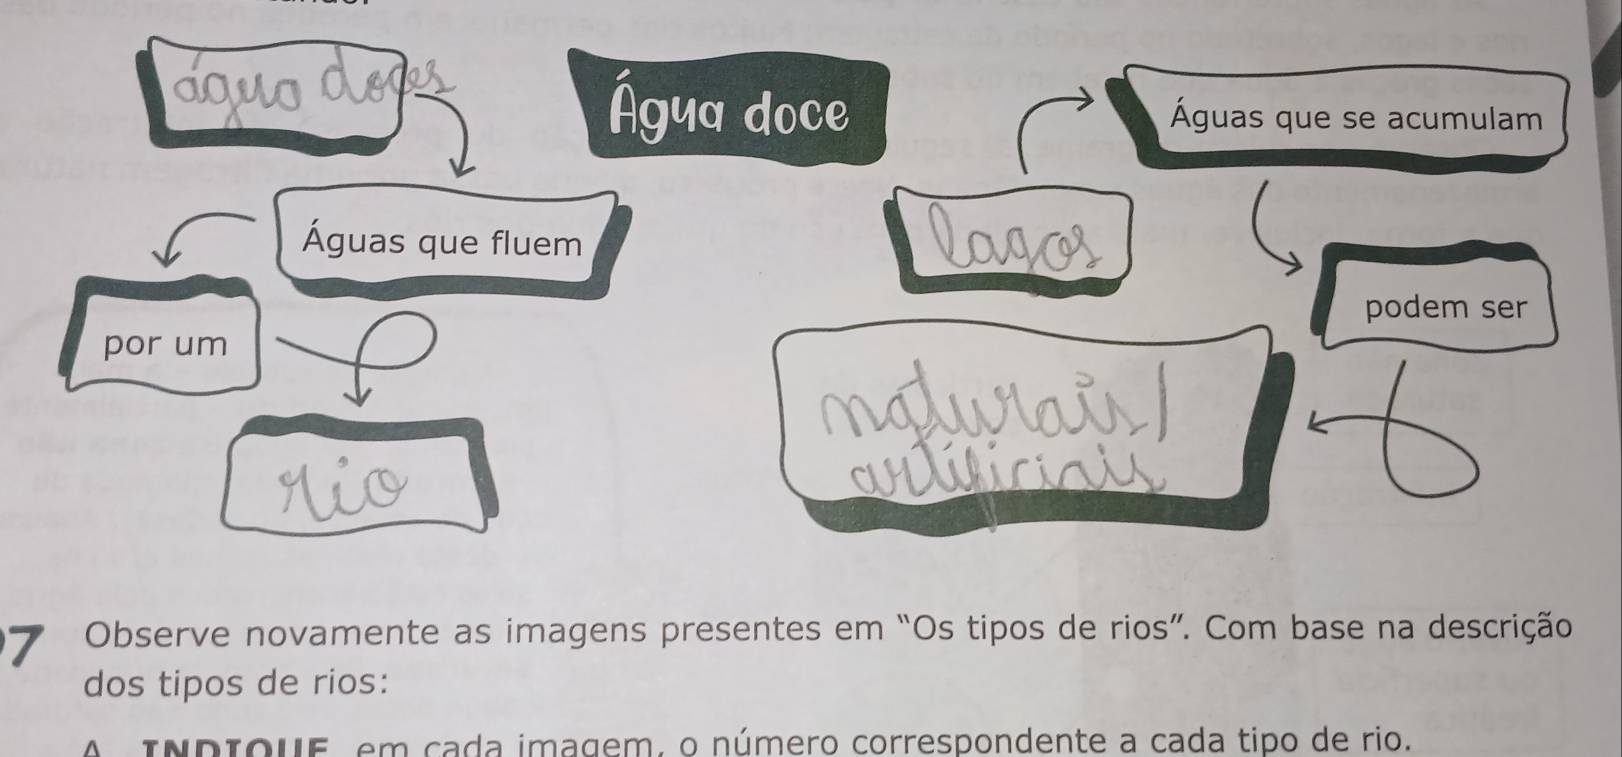 água doces
Água doce
Águas que se acumulam
Águas que fluem
lagos
podem ser
por um
naturais/
artificiais
rio
7 Observe novamente as imagens presentes em “Os tipos de rios”. Com base na descrição
dos tipos de rios:
A INDIQUE em cada imagem, o número correspondente a cada tipo de rio.